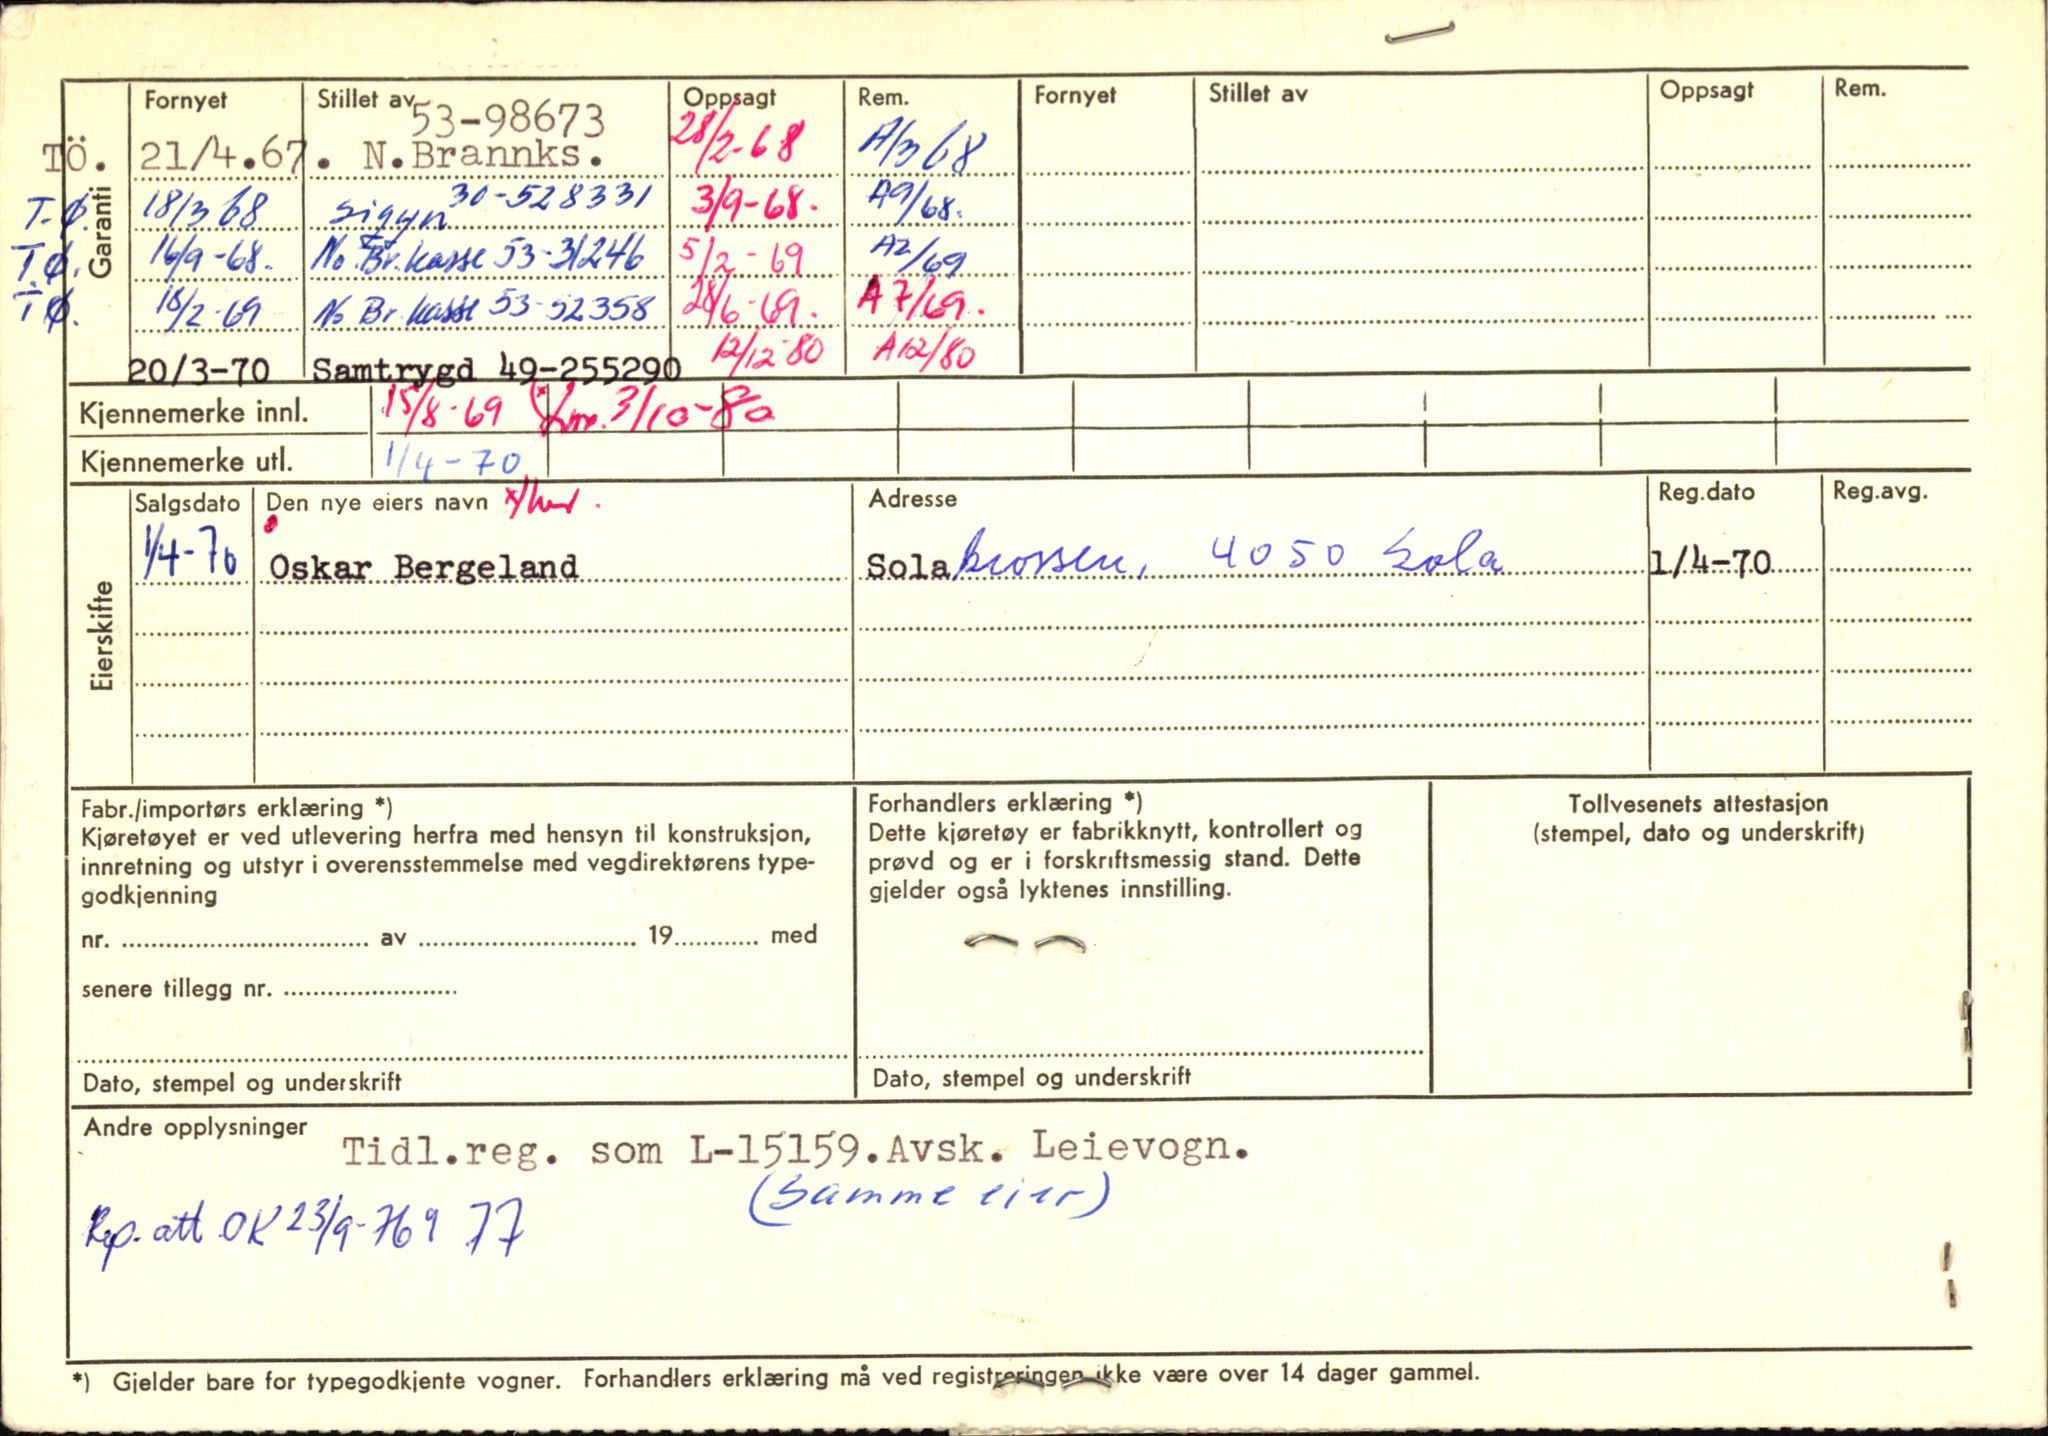 Garanti
Fornyet Stillet av Oppsagt Rem. Fornyet Stillet av Oppsagt Rem.
53-98673
TÖ. 21/4.67. N.Brannks. 28/2-68 A/3 68
T.Ø. 18/3 68 Sigyn 30-528331 3/9-68. A9/68.
T.Ø. 16/9-68. No. Br. kasse 53-31246 5/2-69 A2/69
TØ. 18/2-69 No Br. kasse 53-52358 28/6-69. A7/69.
20/3-70 Samtrygd 49-255290 12/12-80 A12/80
Kjennemerke innl. 15/8-69 3/10-80
Kjennemerke utl. 1/4-70
Eierskifte
Salgsdato Den nye eiers navn Adresse Reg.dato Reg.avg.
1/4-70 Oskar Bergeland Solakrossen, 4050 Sola 1/4-70
Fabr./importørs erklæring *)
Kjøretøyet er ved utlevering herfra med hensyn til konstruksjon,
innretning og utstyr i overensstemmelse med vegdirektørens type-
godkjenning
nr. av 19 med
senere tillegg nr.
Dato, stempel og underskrift
Forhandlers erklæring *)
Dette kjøretøy er fabrikknytt, kontrollert og
prøvd og er i forskriftsmessig stand. Dette
gjelder også lyktenes innstilling.
Dato, stempel og underskrift
Tollvesenets attestasjon
(stempel, dato og underskrift)
Andre opplysninger
Tidl.reg. som L-15159.Avsk. Leievogn.
(Samme eier)
Rep. att OK 23/9-769 77
*) Gjelder bare for typegodkjente vogner. Forhandlers erklæring må ved registreringen ikke være over 14 dager gammel.